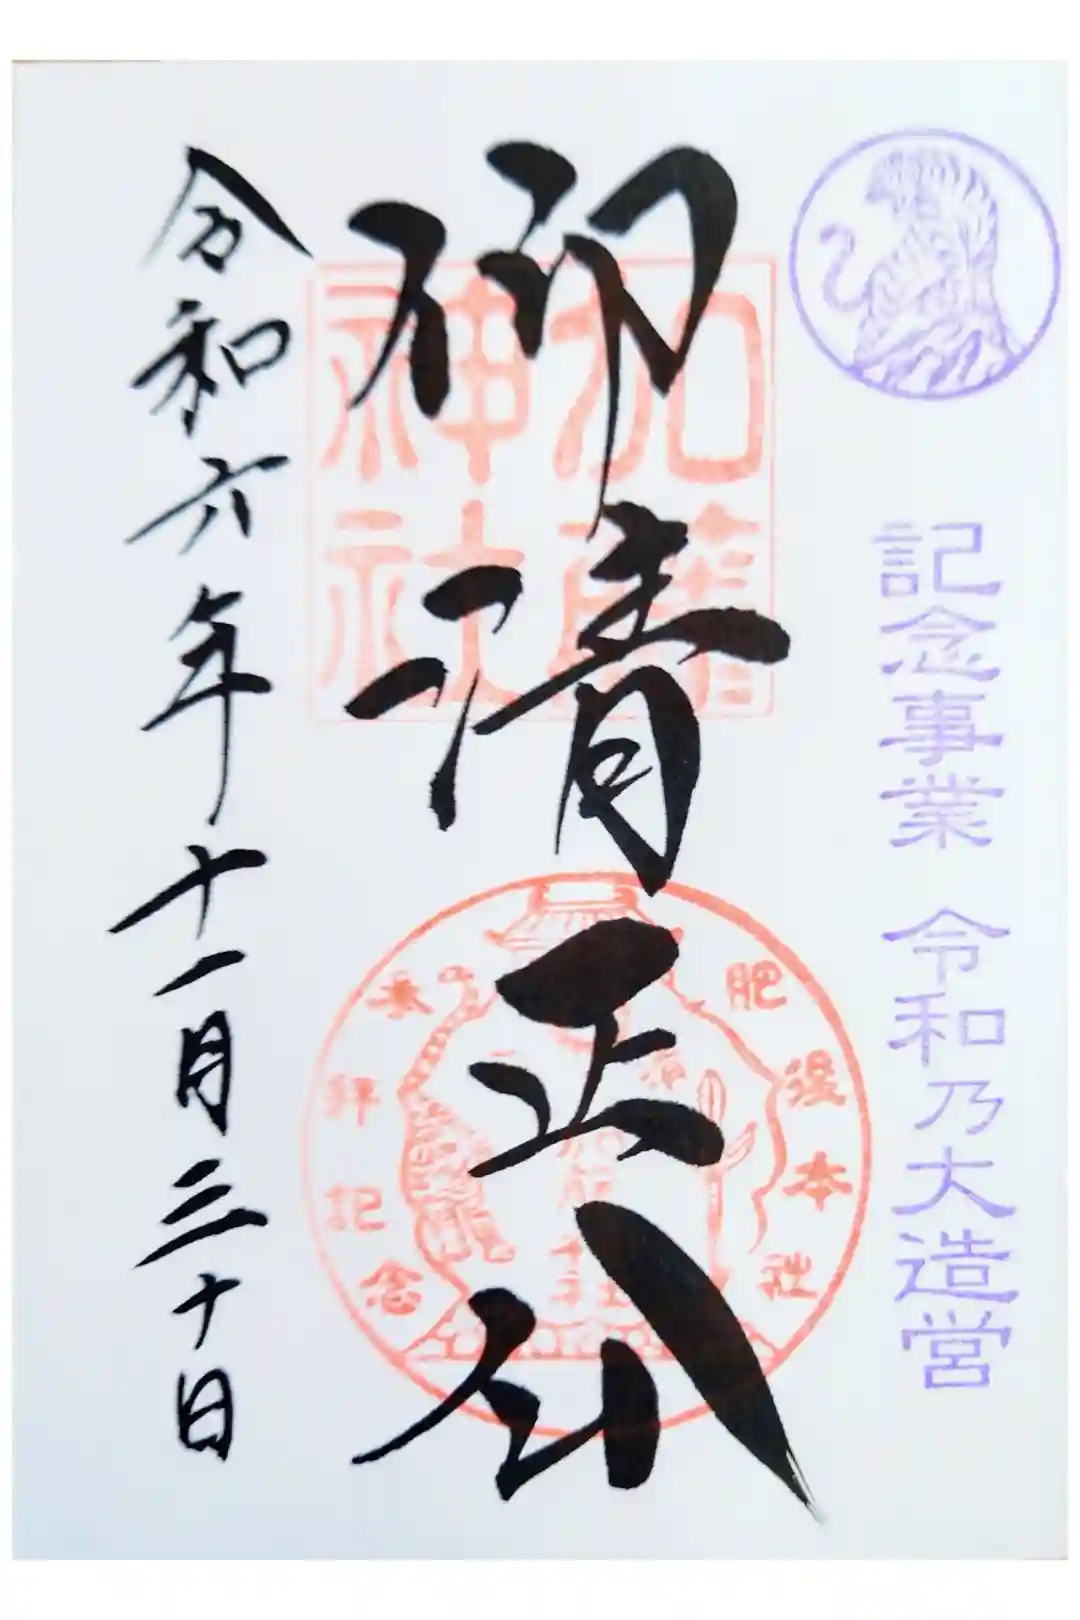 記念事業 令和乃大造営
仰清正公
加藤
神社
肥後本社
参拝記念
令和六年十一月三十日